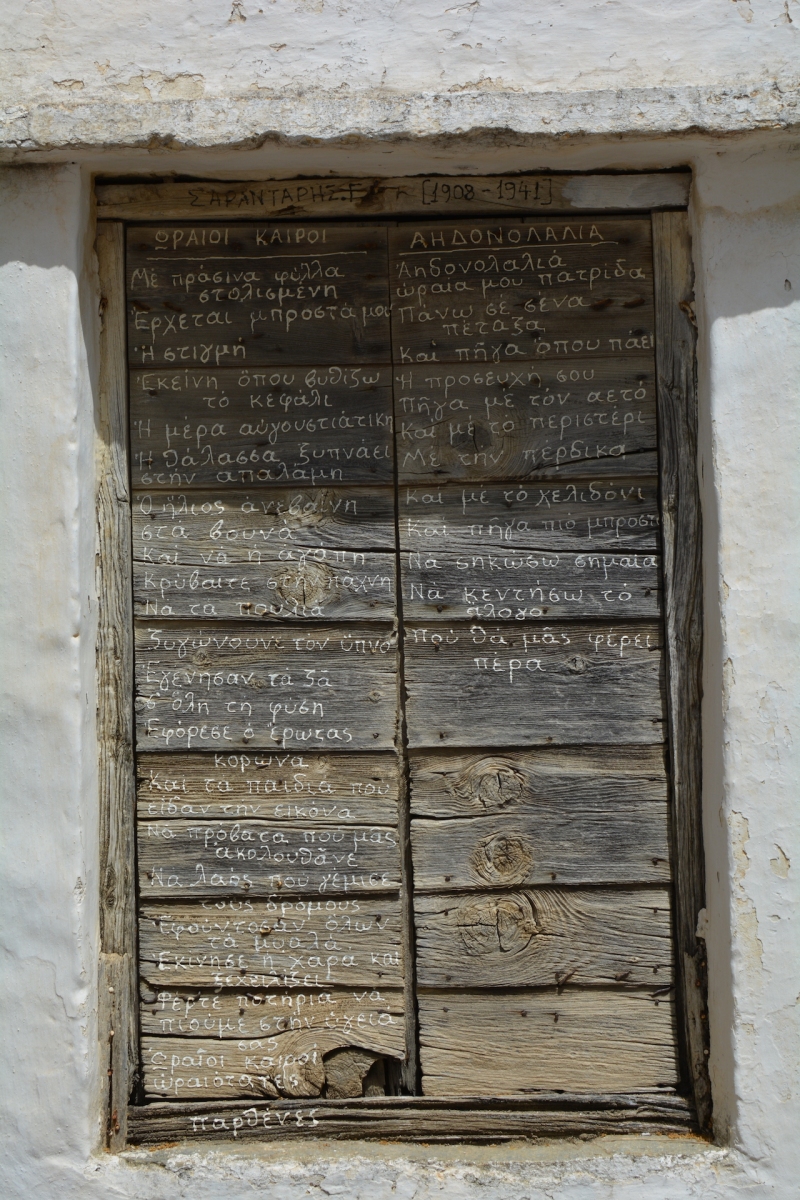 ΣΑΡΑΝΤΑΡΗΣ Γ. [1908-1941]
ΩΡΑΙΟΙ ΚΑΙΡΟΙ
Μὲ πράσινα φύλλα
στολισμένη
Ἔρχεται μπροστά μου
Ἡ στιγμή
Ἐκείνη ὅπου βυθίζω
τὸ κεφάλι
Ἡ μέρα αὐγουστιάτικη
Ἡ θάλασσα ξυπνάει
στὴν ἀπαλάμη
Ὁ ἥλιος ἀνεβαίνη
στὰ βουνά
Καὶ νὰ ἡ ἀγάπη
Κρύβαιτε στὴ πάχνη
Νὰ τὰ πουλιά
Ζυγώνουνε τὸν ὕπνο
Ἐγένησαν τὰ ζᾶ
σ' ὅλη τη φύση
Ἐφόρεσε ὁ ἔρωτας
κορώνα
Καὶ τα παιδιὰ που
εἶδαν την εἰκόνα
Νὰ πρόβατα ποὺ μᾶς
ἀκολουθᾶνε
Νὰ λαὸς ποὺ γέμισε
τους δρόμους
ὅλων
τὰ μυαλά
Ἐκίνησε ἡ χαρὰ καὶ
ξεχειλίζει
Φέρτε ποτήρια νὰ
πιοῦμε στὴν ὑγειά
σας
Ὡραῖοι καιροί
ὡραιότατες
παρθένες
ΑΗΔΟΝΟΛΑΛΙΑ
Ἀηδονολαλιά
ὡραία μου πατρίδα
Πάνω σὲ σένα
πέταξα
Καὶ πῆγα ὅπου πάει
Ἡ προσευχή σου
Πῆγα μὲ τὸν ἀετὸ
Καὶ μὲ τὸ περιστέρι
Μὲ την πέρδικα
Καὶ μὲ τὸ χελιδόνι
Καὶ πῆγα πιὸ μπροστὰ
Νὰ σηκώσω σημαία
Νὰ κεντήσω τὸ
ἄλογο
ποὺ θὰ μᾶς φέρει
πέρα